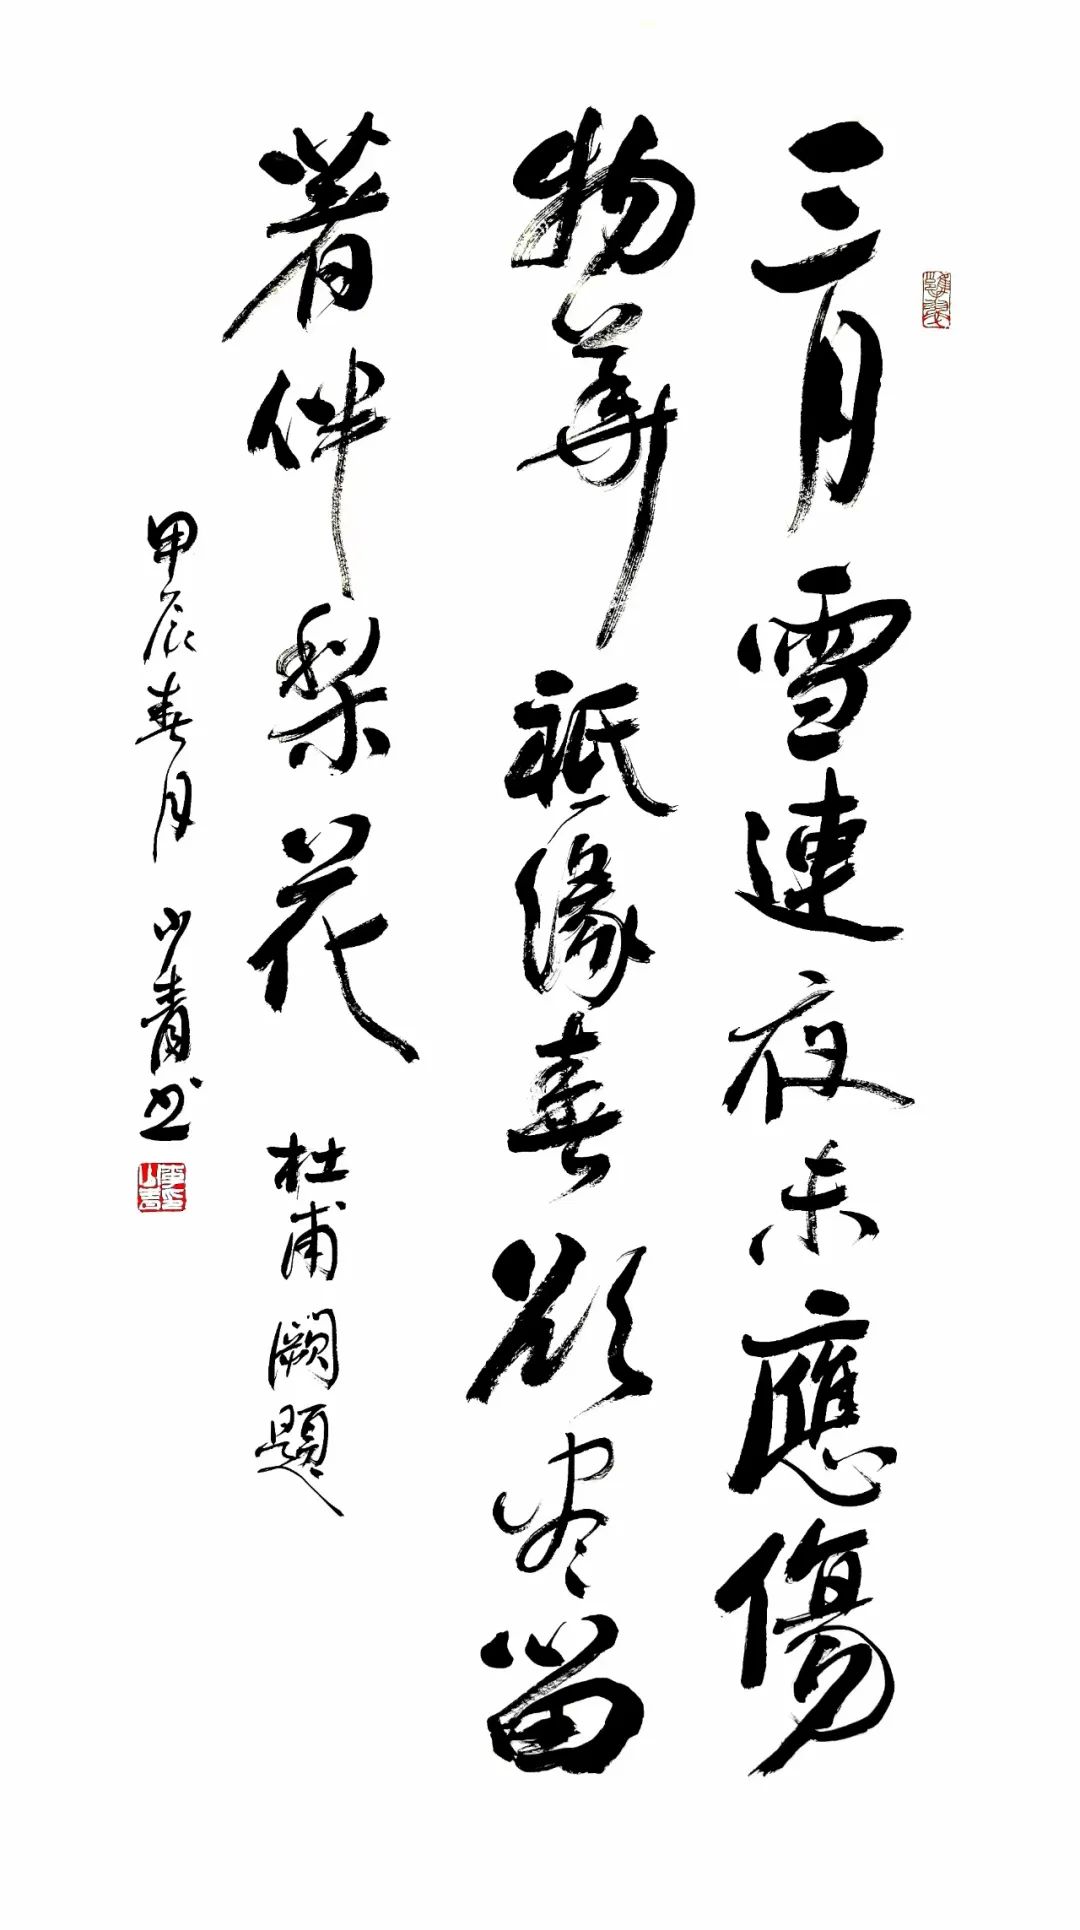 三月雪連夜未應傷
物華祇緣春欲尽留
著伴梨花
杜甫闕題
甲辰春月山青书